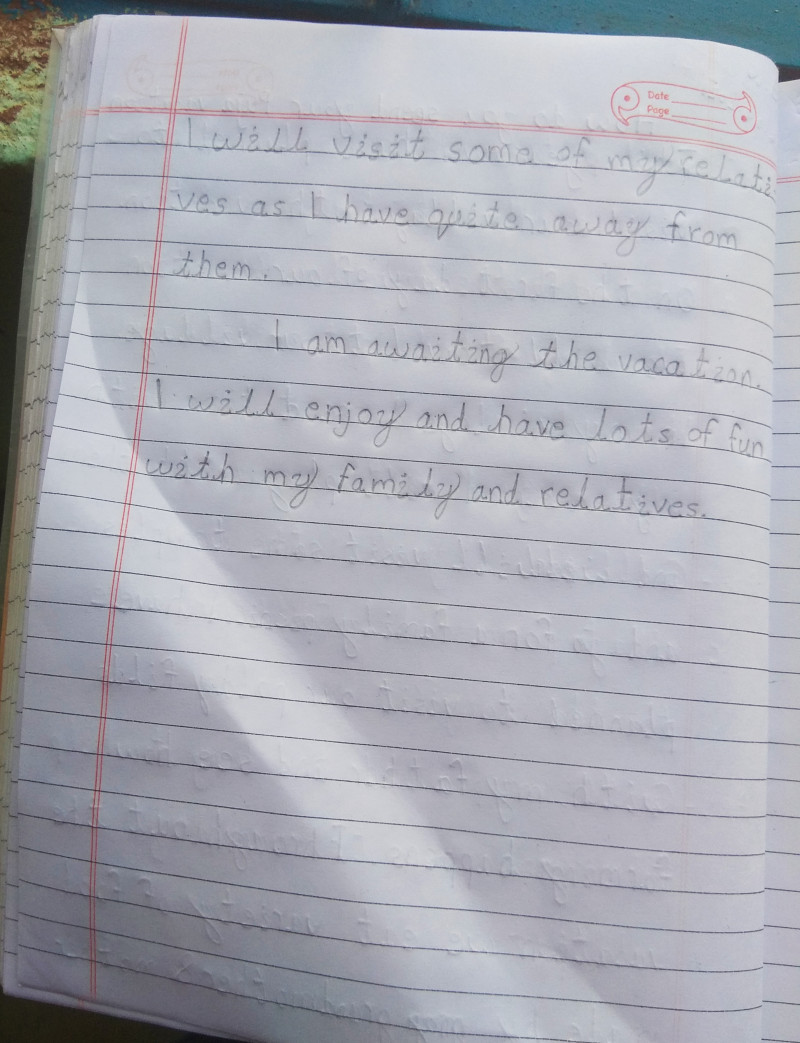 Date
Page
I will visit some of my relati
ves as I have quite away from
them.
I am awaiting the vacation.
I will enjoy and have lots of fun
with my family and relatives.